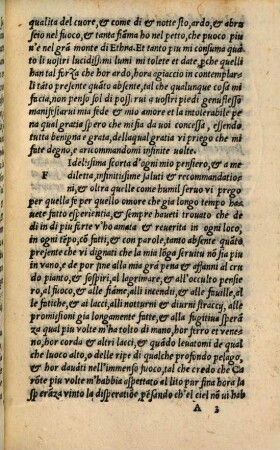 qualita del cuore, & come di & notte sto, ardo, & abru
scio nel fuoco, & tanta fiāma ho nel petto, che puoco piu
n'e nel grā monte di Ethna. Et tanto piu mi consuma quāto
to li uostri lucidissimi lumi mi tolete et date, pche quelli
han tal forza che hor ardo, hora agiaccio in contemplar-
li tāto presente quāto absente, tal che qualunque cosa mi
facia, non penso sol di possi rui a uostri piedi genuflesso
manifestarui mia fede & mio amore et la intolerabile pe
na qual gratia spero che misia da uoi concessa, essendo
tutta benigna e grata, della qual gratia vi prego che mi
fate degno, e aricommandomi infinite uolte.
Idelissima scorta d'ogni mio pensiero, & a me
F diletta, infinitissime saluti & recommandatio
ni, & oltra quelle come humil seruo vi prego
per quella fe per quello omore che gia longo tempo ha-
uete fatto esperientia, & sempre haueti trouato che de
di in di piu forte v'ho amata & reuerita in ogni loco,
in ogni tēpo, cō fatti, & con parole, tanto absente quāto
presente che vi dignati che la mia lōga seruitu nō fia piu
in vano, & de por fine alla mia grā pena & affanni al cru
do pianto, & sospiri, al lagrimare, & all'occulto pensie
ro, al fuoco, & alle fiāme, alli incendi, & alle fauille, al
le fatiche, & ai lacci, alli notturni & diurni straccij, alle
promissioni gia longamente fatte, & alla fugitiua sperā
za qual piu volte m'ha tolto di mano, hor ferro et vene-
no, hor corda & altri lacci, & quādo leuatomi de qual
che luoco alto, o delle ripe di qualche profondo pelago,
& hor dauāti nell'immenso fuoco, tal che credo che Ca
rōte piu volte m'habbia aspettato al lito pur fina hora la
sperāza vinto la disperatiōe pēsando ch'el ciel nō ui hab
A 3